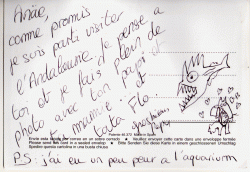 Anäe,
comme promis
je suis parti visiter
l'Andalousie. Je pense à
toi et je fais plein de
photo avec ton papy et
ta mamie.
tata Flo.
Envíe esta tarjeta por correo en un sobre cerrado
Please send this card in a sealed envelop
Veuillez envoyer cette carte dans une enveloppe fermée
Bitte Senden Sie diese Karte in einem geschlossenen Umschlag
Spedire questa cartolina in una busta chiusa
PS: j'ai eu un peu peur à l'aquarium